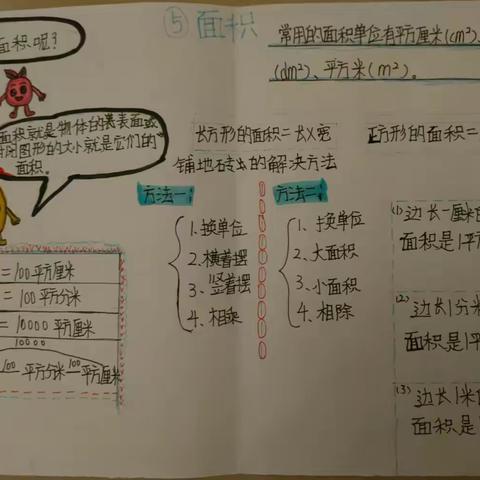 ⑤ 面积
面积呢?
常用的面积单位有平方厘米(cm²)、
(dm²)、平方米(m²)。
面积就是物体的表面或
闭图形的大小就是它们的
面积。
长方形的面积=长×宽
正方形的面积=
铺地砖的解决方法
方法一:
1、换单位
2、横着摆
3、竖着摆
4、相乘
方法二:
1、换单位
2、大面积
3、小面积
4、相除
(1)边长一厘米的
面积是1平方
(2)边长1分米
面积是1平
(3)边长1米的
面积是1
=100平方厘米
=100平方分米
=10000平方厘米
10000
100 平方分米 100 平方厘米